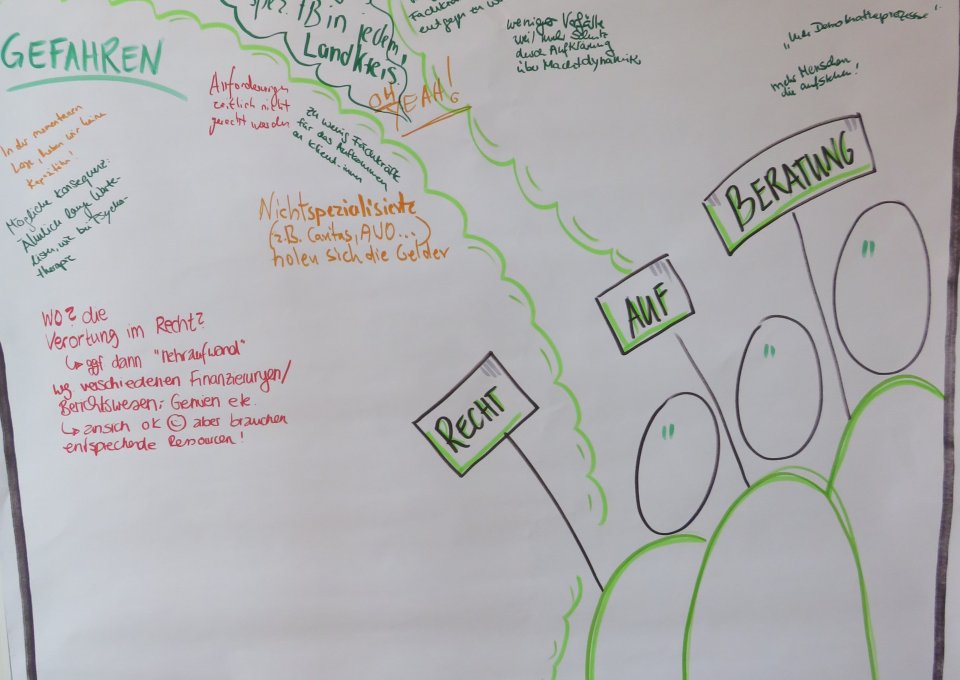 spez. FB in jedem
Landkreis
OH YEAH!
Fachkräfte
entgegen zu
weniger Vorfälle
weil mehr Schutz
durch Aufklärung
über Machtdynamik
"Mehr Demokratieprozesse"
mehr Menschen
die aufstehen!
GEFAHREN
In der momentanen
Lage, haben wir keine
Kapazitäten!
Mögliche Konsequenz:
Ähnlich lange Warte-
listen, wie bei Psycho-
therapie
Anforderungen
zeitlich nicht
gerecht werden
zu wenig Fachkräfte
für das Aufkommen
an Klient_innen
Nichtspezialisierte
(z.B. Caritas, AWO...)
holen sich die Gelder
WO? die
Verortung im Recht?
↳ ggf dann "Mehraufwand"
wg. verschiedenen Finanzierungen/
Berichtswesen; Gremien etc.
↳ ansich ok ☺ aber brauchen
entsprechende Ressourcen!
RECHT
AUF
BERATUNG